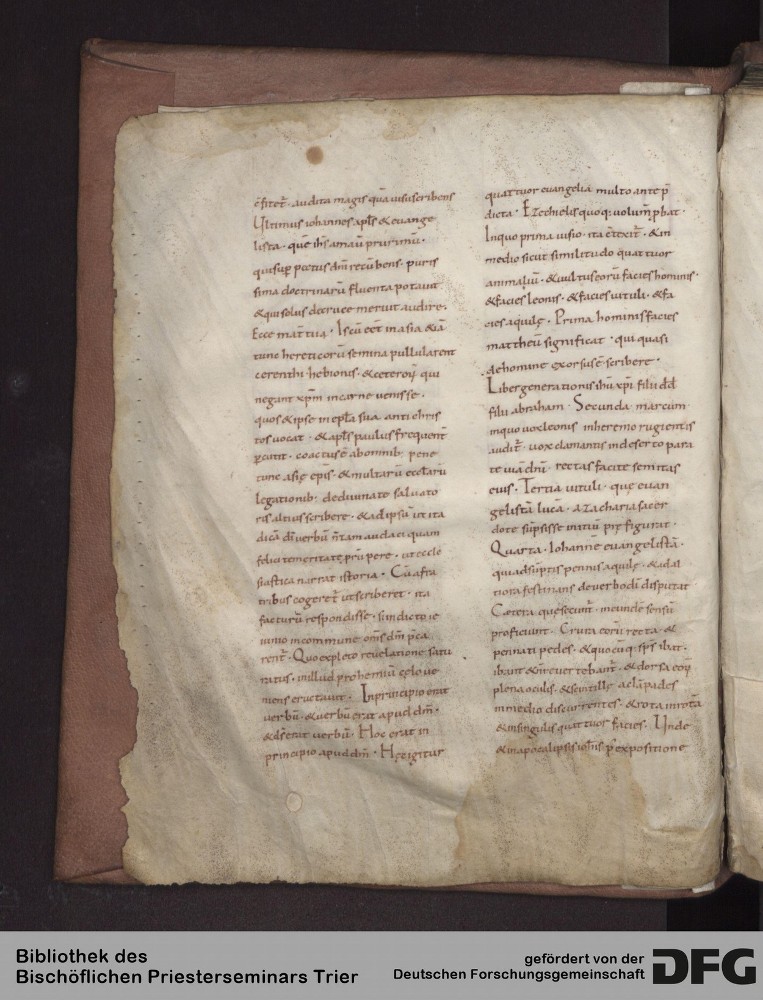 c̄fitet̄· audita magis quā uisuscribens
Ultimus iohannes apl̄s & euange
lista· quē ih̄s amauit plurimū·
qui sup̄ pectus dn̄i recūbens· puris
sima doctrinarū fluenta potauit
& qui solus de cruce meruit audire·
Ecce mat̄ tua· Is cū eēt in asia & iā
tunc hereticorū semina pullularent
cerenthi· hebionis· & ceterorū qui
negant xp̄m in carne uenisse·
quos & ipse in epl̄a sua anti chris
tos uocat· & apl̄s paulus frequent̄
ꝑcutit· coactus ē ab omnib; pene
tunc asię ep̄is· & multarū eccl̄arū
legationib; de diuinate saluato
ris altius scribere· & ad ipsū ut ita
dicā dī uerbū n̄ tam audaci quam
felici temeritate prūpere· ut eccle
siastica narrat istoria· Cū a fra
tribus cogeret̄ ut scriberet· ita
facturū respondisse· si indicto ie
iunio in commune om̄s dm̄ p̄ca
rent̄· Quo expleto reuelatione satu
ratus· in illud prohemiū cęlo ue
niens eructauit· In principio erat
uerbū· & uerbū erat apud dm̄·
& ds̄ erat uerbū· Hoc erat in
principio apud dm̄· Hęc igitur
quattuor euangelia multo ante p̄
dicta· Ezechielis quoq; uolum̄ ꝓbat·
In quo prima uisio· ita c̄texit̄· & in
medio sicut similitudo quattuor
animaliū· & uultus eorū facies hominis·
& facies leonis· & facies uituli· & fa
cies aquilę· Prima hominis facies
mattheū significat· qui quasi
de homine exorsus ē scribere·
Liber generationis ih̄u xp̄i filii dd̄
filii abraham· Secunda· marcum
in quo uox leonis in heremo rugientis
audit̄· uox clamantis in deserto para
te uiā dn̄i· rectas facite semitas
eius· Tertia uituli· quę euan
gelistā lucā· a zacharia sacer
dote sūpsisse initiū pręfigurat·
Quarta· Iohannē euangelistā·
qui adsūptis pennis aquilę· & ad al
tiora festinans de uerbo dī disputat
Cætera que secunt̄· in eunde sensū
proficiunt· Crura eorū recta· &
pennati pedes· & quocūq; sp̄s ibat·
ibant & n̄ reuertebant̄· & dorsa eorū
plena oculis· & scintillę ac lāpades
in medio discurrentes· & rota in rotā
& in singulis quattuor facies· Unde
& in apocalipsis ioh̄nis p̄ expositione
Bibliothek des
Bischöflichen Priesterseminars Trier
gefördert von der
Deutschen Forschungsgemeinschaft
DFG